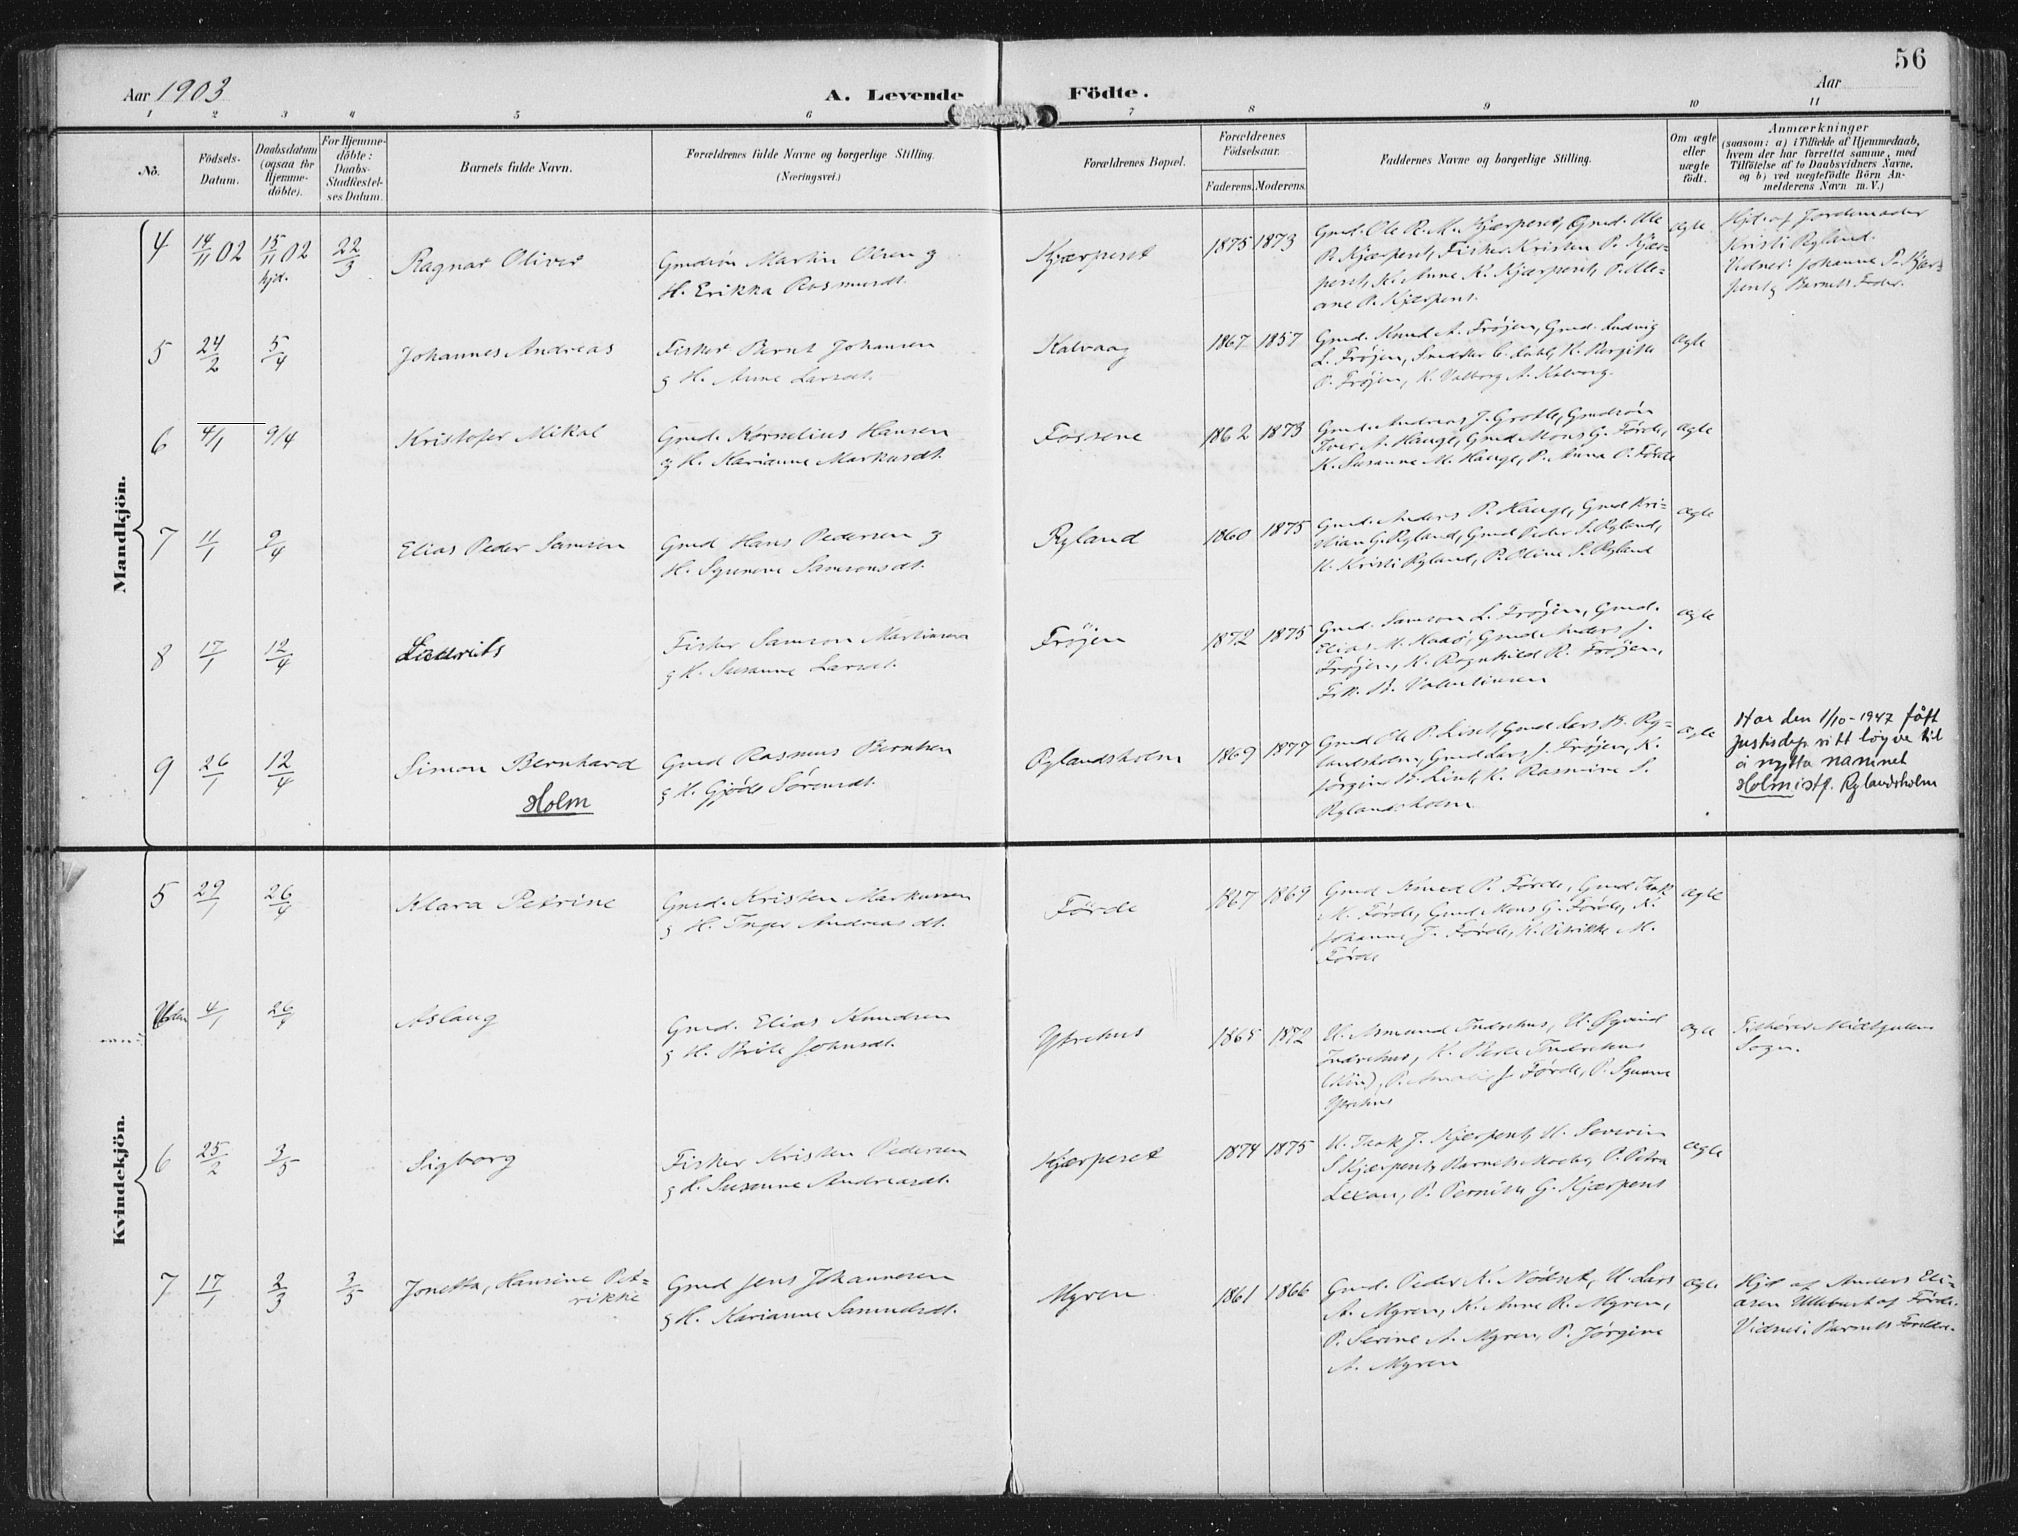 56
Aar 1903
A. Levende Födte.
Aar
1 2 3 4 5 6 7 8 9 10 11
No.
Födsels-Datum.
Daabsdatum (ogsaa för Hjemme-döbte).
For Hjemme-döbte: Daabs-Stadfæstel-ses Datum.
Barnets fulde Navn.
Forældrenes fulde Navne og borgerlige Stilling.
(Næringsvei.)
Forældrenes Bopæl.
Forældrenes Födselsaar.
Faderens. Moderens.
Faddernes Navne og borgerlige Stilling.
Om ægte eller uægte födt.
Anmærkninger
(saasom: a) i Tilfælde af Hjemmedaab,
hvem der har forrettet samme, med
Tilföielse af to Daabsvidners Navne,
og b) ved uægtefödte Börn An-
melderens Navn m. V.)
Mandkjön.
4 14/11 02 15/11 02 hjd. 22/3 Ragnar Oliver
Gmdsøn Martin Olsen g
H. Erikka Rasmusdt.
Kjærpeset 1875 1873
Gmd. Ole R. K. Kjærpeset, Gmd. Ole
P. Kjærpeset, Fisker Kristen P. Kjær-
peset, K. Anne K. Kjærpeset, P. Ole-
ane P. Kjærpeset
ægte
Hjd. af Jordemoder
Kristi Ryland.
Vidner: Johanne P. Kjær-
peset g Barnets Fader.
5 24/2 5/4 Johannes Andreas
Fisker Bernt Johansen
g H. Anne Larsdt.
Kalvaag 1867 1857
Gmd. Knud A. Frøjen, Gmd. Ludvig
L. Frøjen, K. Birgitte
P. Frøjen, K. Valborg A. Kalvaag.
ægte
6 4/1 9/4 Kristofer Mikal
Gmd. Kornelius Hansen
og H. Karianne Markusdt.
Fossene 1862 1873
Gmd. Andreas J. Grotle, Gmdsøn
Iver A. Hauge, Gmd Mons G. Førde,
K. Susanne M. Hauge, P. Anna O. Førde
ægte
7 11/1 9/4 Elias Peder Samsen
Gmd Hans Pedersen g
H. Synneve Samsonsdt.
Ryland 1860 1875
Gmd. Anders P. Hauge, Gmd Kri-
stian G. Ryland, Gmd Peder S. Ryland,
K. Kristi Ryland, P. Oline S. Ryland
ægte
8 17/1 12/4 Laurits
Fisker Samson Martinsen
g H. Susanne Larsdt.
Frøjen 1872 1875
Gmd. Samson L. Frøjen, Gmd.
Elias M. Gmd Anders J.
Frøjen, K. Ragnhild R. Frøjen,
Frk. B. Valentinsen
ægte
9 26/1 12/4 Simon Bernhard
Holm
Gmd Rasmus Berntsen
g H. Gjøde Sørensdt.
Rylandsholm 1869 1877
Gmd Ole P. Liset, Gmd Lars B. Ry-
landsholm, Gmd Lars J. Frøjen, K.
Jørgine Liset, K. Rasmine S.
Rylandsholm
ægte
Har den 1/10-1947 fått
Justisdep. sitt løgve til
å nytta namnet
Holm istf. Rylandsholm
Kvindekjön.
5 29/1 26/4 Klara Petrine
Gmd. Kristen Markussen
g H. Inger Andreasdt.
Førde 1867 1869
Gmd Simed P. Førde, Gmd Isak
M. Førde, Gmd Mons G. Førde, K.
Johanne J. Førde, K. Petrikke M.
Førde
ægte
Uden 4/1 26/4 Aslaug
Gmd. Elias Knudsen
g H. Brite Johnsdt.
Ytrehus 1865 1872
U. Asmund Indrehus, U. Øyvind
Indrehus, K. Indrehus
P. Amalie J. Førde, P. Synneve
Ytrehus
ægte
Tilhører Midtgulen
Sogn.
6 25/2 3/5 Sigborg
Fisker Kristen Pedersen
g H. Susanne Andreasdt.
Kjærpeset 1874 1875
U. Isak J. Kjærpeset, U. Severin
S Kjærpeset, Barnets Moder, P. Petra
P. Pernille G. Kjærpeset
ægte
7 17/1 2/3 3/5 Jonetta, Hansine Pet-
rikke
Gmd Jens Johannesen
g H. Karianne Samuelsdt.
Myren 1861 1866
Gmd. Peder K. Nødset, U. Lars
A. Myren, K. Anne R. Myren,
P. Serine A. Myren, P. Jørgine
A. Myren
ægte
Hjd af Anders Eli-
asen Ullebust af Førde.
Vidner: Barnets Foreldre.